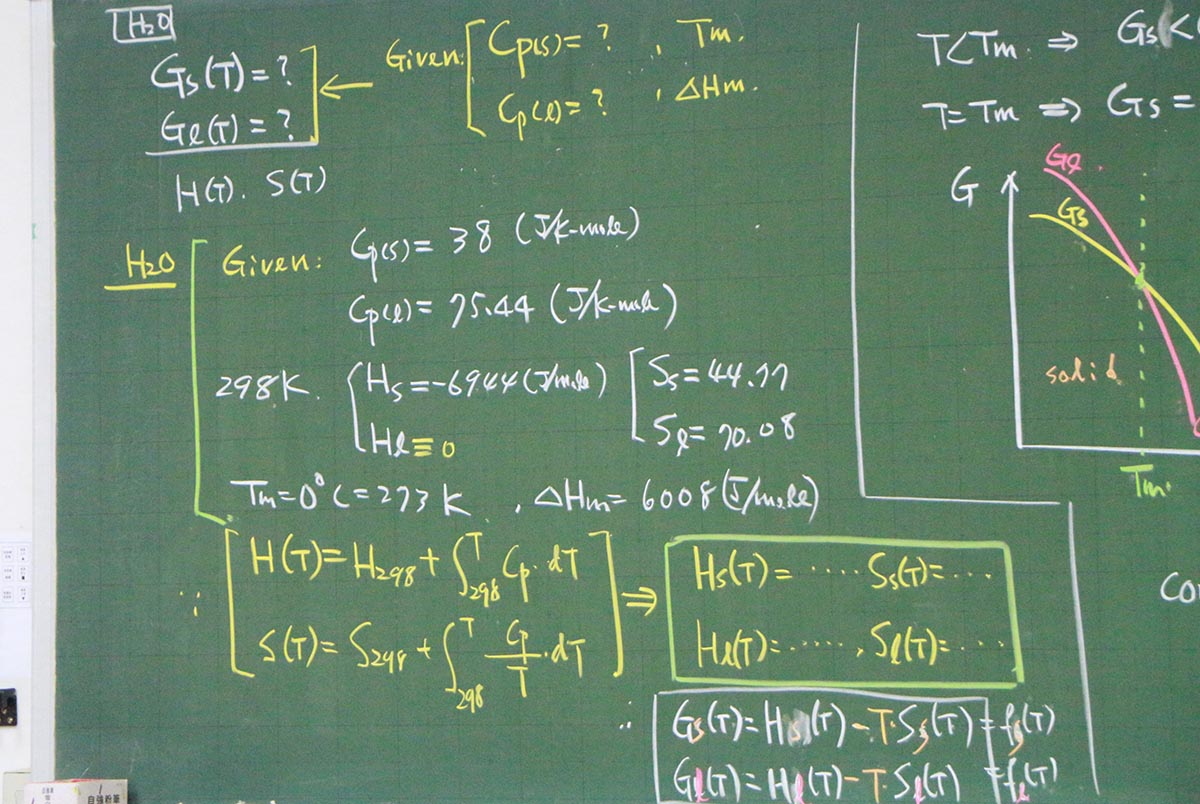 H₂O
Gs(T) = ?
Gl(T) = ?
← Given: Cp(s) = ? , Tm.
Cp(l) = ? , ΔHm.
H(T). S(T)
H₂O Given: Cp(s) = 38 (J/K-mole)
Cp(l) = 75.44 (J/K-mole)
298K. Hs = -6944 (J/mole) Ss = 44.77
Hl ≡ 0 Sl = 70.08
Tm = 0°C = 273K , ΔHm = 6008 (J/mole)
∵ H(T) = H₂₉₈ + ∫₂₉₈ᵀ Cp·dT
S(T) = S₂₉₈ + ∫₂₉₈ᵀ Cp/T·dT
⇒ Hs(T) = ···· Ss(T) = ···
Hl(T) = ·····, Sl(T) = ···
∴ Gs(T) = Hs(T) - T·Ss(T) = fs(T)
Gl(T) = Hl(T) - T·Sl(T) = fl(T)
T < Tm ⇒ Gs <
T = Tm ⇒ Gs =
Gl.
G
Gs
solid
Tm.
自強粉筆